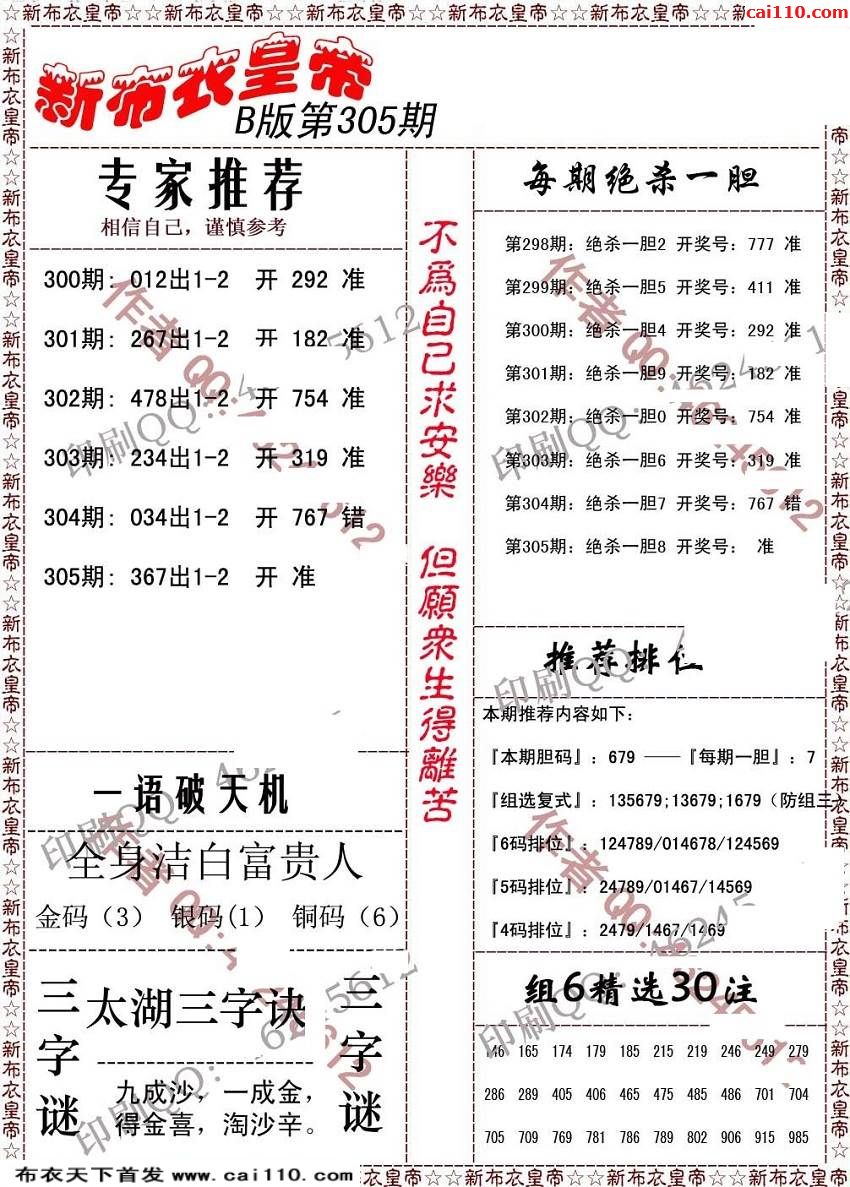 ☆☆新布衣皇帝☆☆新布衣皇帝☆☆新布衣皇帝☆☆新布衣皇帝☆☆新布衣皇帝☆☆新布衣皇帝☆☆
cai110.com
新布衣皇帝
B版第305期
专家推荐
相信自己，谨慎参考
300期: 012出1-2 开 292 准
301期: 267出1-2 开 182 准
302期: 478出1-2 开 754 准
303期: 234出1-2 开 319 准
304期: 034出1-2 开 767 错
305期: 367出1-2 开 准
一语破天机
全身洁白富贵人
金码（3） 银码(1） 铜码（6）
三字谜
太湖三字诀
九成沙，一成金，
得金喜，淘沙辛。
三字谜
不為自己求安樂 但願衆生得離苦
每期绝杀一胆
第298期: 绝杀一胆2 开奖号: 777 准
第299期: 绝杀一胆5 开奖号: 411 准
第300期: 绝杀一胆4 开奖号: 292 准
第301期: 绝杀一胆9 开奖号: 182 准
第302期: 绝杀一胆0 开奖号: 754 准
第303期: 绝杀一胆6 开奖号: 319 准
第304期: 绝杀一胆7 开奖号: 767 错
第305期: 绝杀一胆8 开奖号: 准
推荐排位
本期推荐内容如下:
『本期胆码』: 679 ——『每期一胆』: 7
『组选复式』: 135679;13679;1679（防组三）
『6码排位』: 124789/014678/124569
『5码排位』: 24789/01467/14569
『4码排位』: 2479/1467/1469
组6精选30注
146 165 174 179 185 215 219 246 249 279
286 289 405 406 465 475 485 486 701 704
705 709 769 781 786 789 802 906 915 985
布衣天下首发 www.cai110.com
衣皇帝☆☆新布衣皇帝☆☆新布衣皇帝☆☆新布衣皇帝☆☆